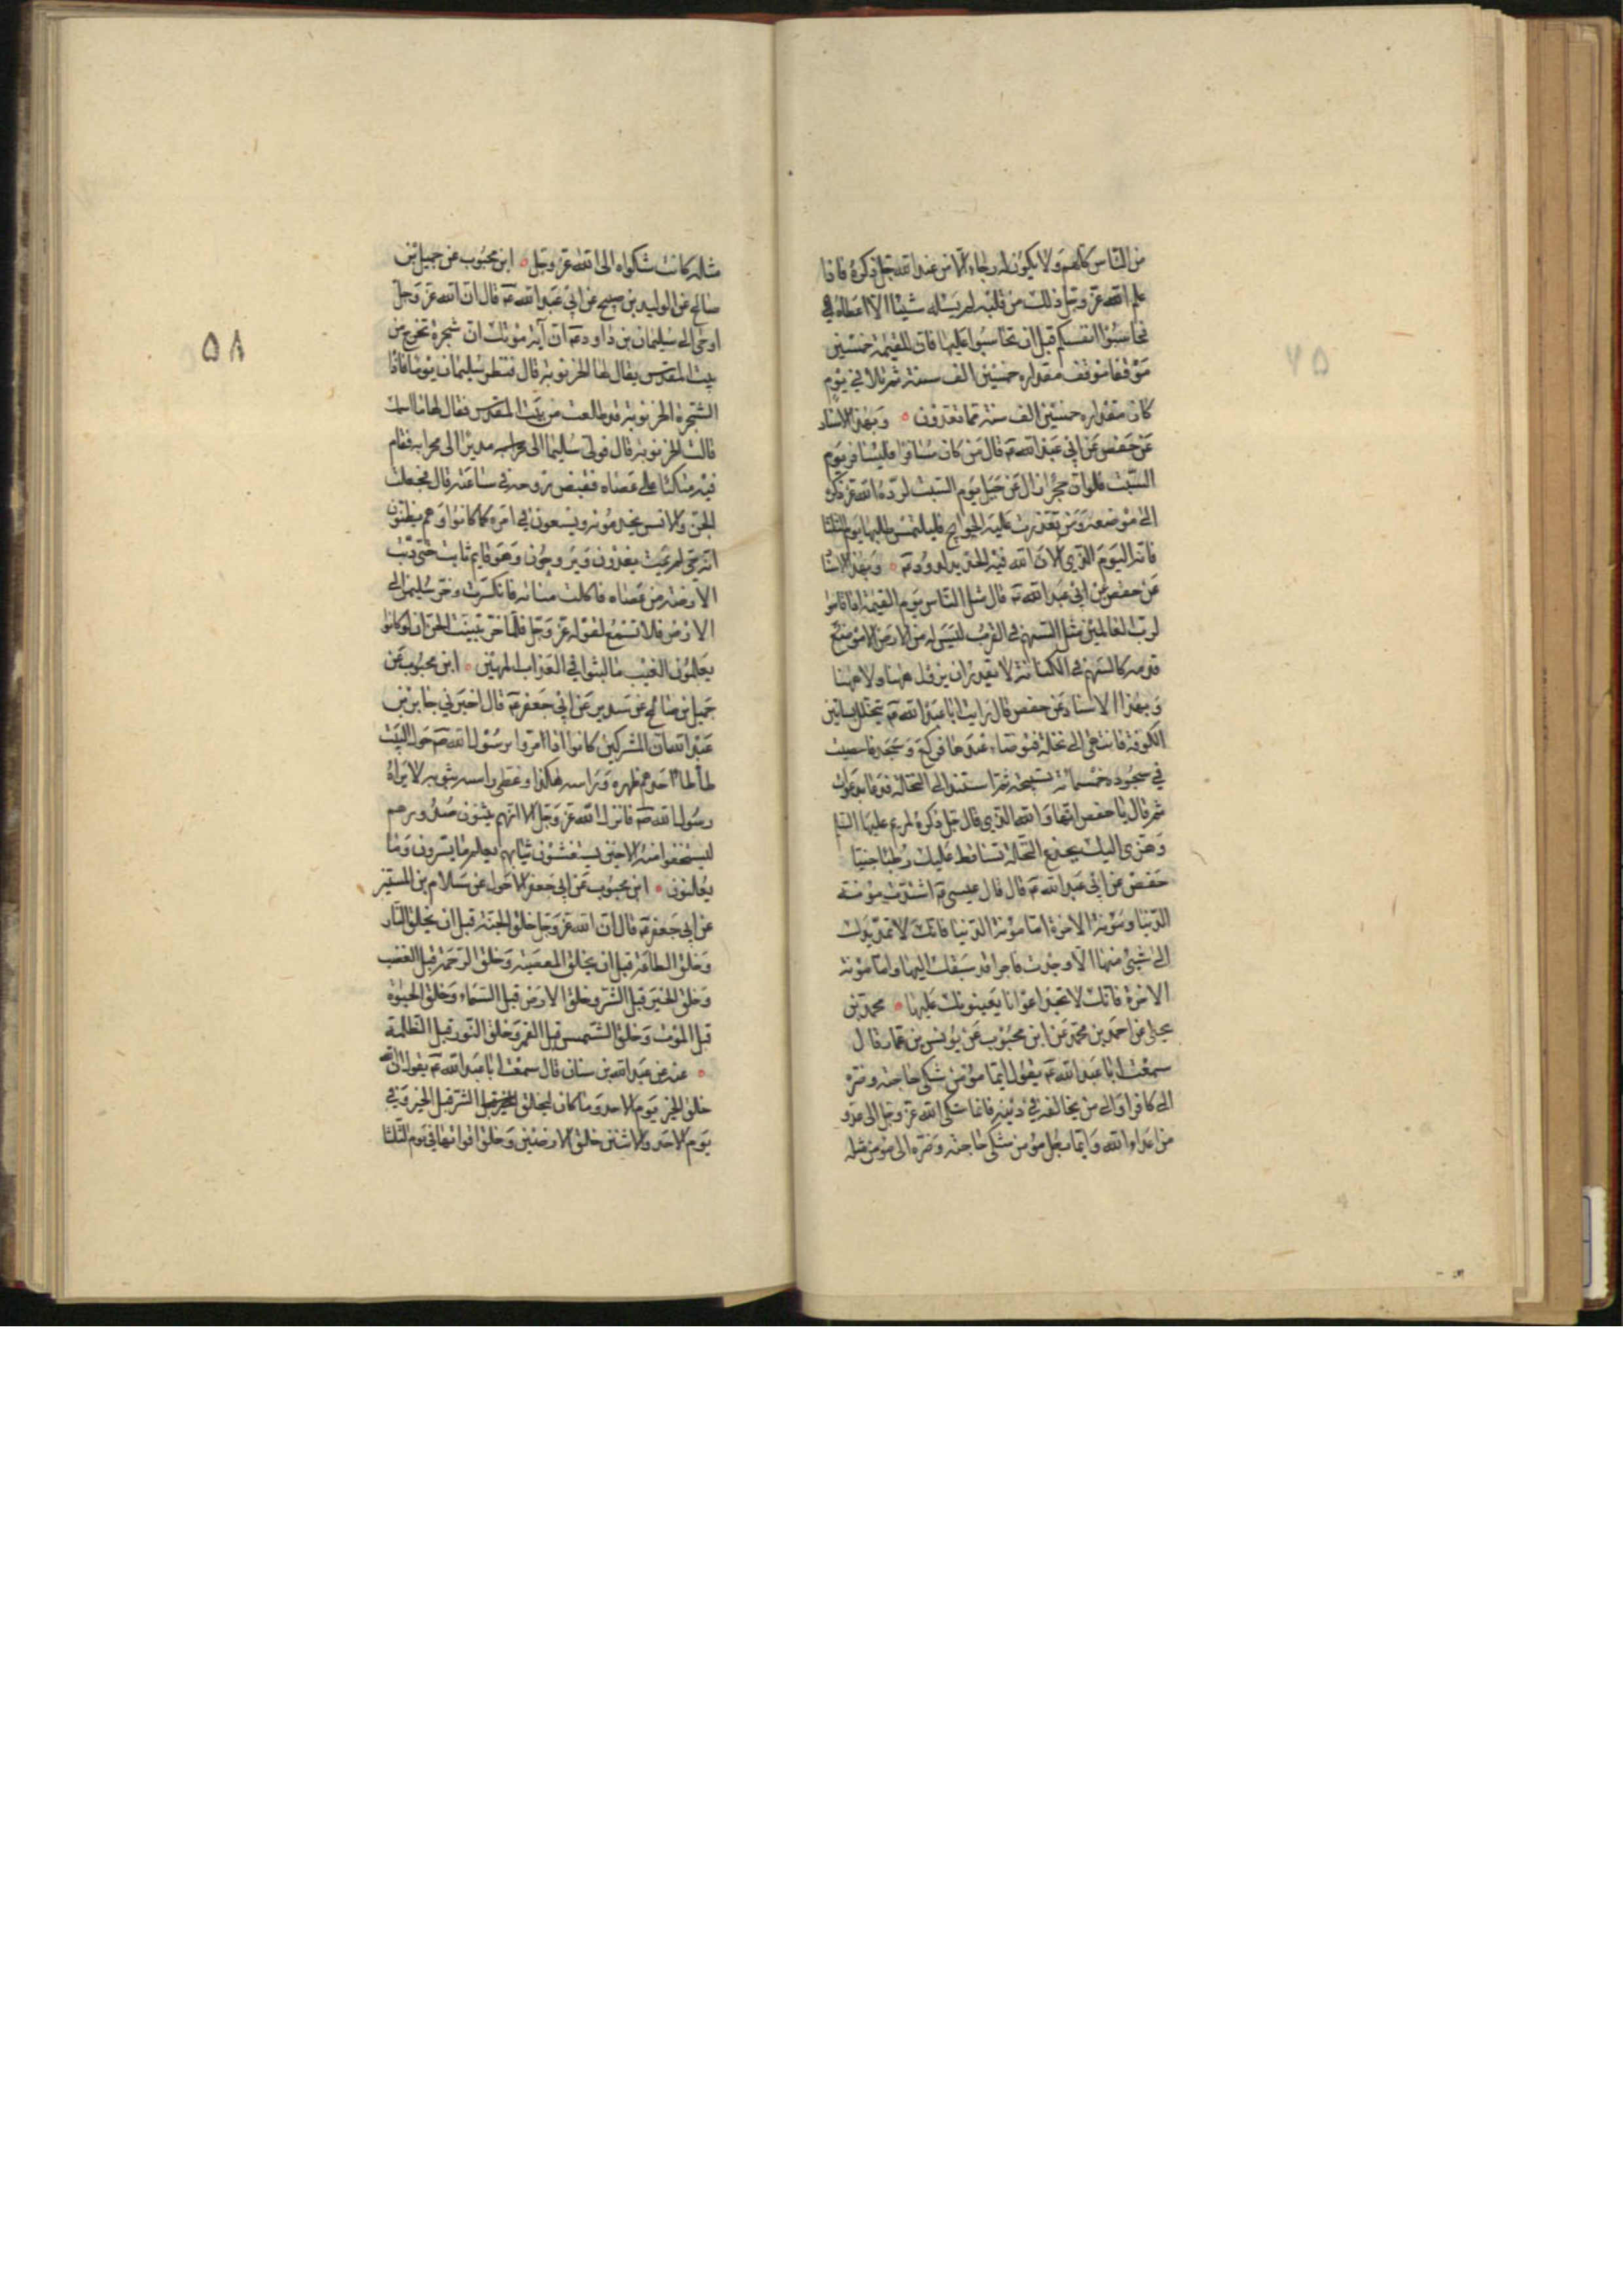 من الناس كلهم ولا يكون له رجاء الا من عند الله جل ذكره فاذا
علم الله عز وجل ذلك من قلبه لم يسئله شيئا الا اعطاه
فحاسبوا انفسكم قبل ان تحاسبوا عليها فان للقيمة خمسين
موقفا موقف مقداره خمسين الف سنة ثم تلا في يوم
كان مقداره خمسين الف سنة مما تعدون وبهذا الاسناد
عن حفص عن ابي عبد الله ع قال من كان مسافرا فليسافر يوم
السبت فلو ان حجرا زال عن جبل يوم السبت لرده الله عز ذكره
الى موضعه ومن تعذرت عليه الحوايج فليلتمس طلبها يوم الثلثا
فانه اليوم الذي الان الله فيه الحديد لداوود ع وبهذا الاسنا
عن حفص عن ابي عبد الله ع قال مثل الناس يوم القيمة اذا قاموا
لرب العالمين مثل السهم في القرب ليس له من الارض الا موضع
قدمه كالسهم في الكنانة لا يقدر ان يزول ههنا ولا ههنا
وبهذا الاسناد عن حفص قال رايت ابا عبد الله ع يتخلل بساتين
الكوفة فانتهى الى نخلة فتوضاء عندها ثم ركع وسجد فاحصيت
في سجوده خمسمائة تسبيحة ثم استند الى النخلة فدعا بدعوات
ثم قال يا حفص انها والله النخلة التي قال جل ذكره لمريم عليها السلم
وهزى اليك بجذع النخلة تساقط عليك رطبا جنيا
حفص عن ابي عبد الله ع قال قال عيسى ع اشتدت مؤنة
الدنيا ومؤنة الاخرة اما مؤنة الدنيا فانك لا تمد يدك
الى شيئ منها الا وجدت فاجرا قد سبقك اليها واما مؤنة
الاخرة فانك لا تجد اعوانا يعينونك عليها محمد بن
يحيى عن احمد بن محمد عن ابن محبوب عن يونس بن عمار قال
سمعت ابا عبد الله ع يقول ايما مؤمن شكى حاجته وضره
الى كافر او الى من يخالفه في دينه فانما شكى الله عز وجل الى عدو
من اعداء الله وايما رجل مؤمن شكى حاجته وضره الى مؤمن مثله
مثله كانت شكواه الى الله عز وجل ابن محبوب عن جميل بن
صالح عن الوليد بن صبيح عن ابي عبد الله ع قال ان الله عز وجل
اوحى الى سليمان بن داود ع ان آية موتك ان شجرة تخرج من
بيت المقدس يقال لها الخرنوبة قال فنظر سليمان يوما فاذا
الشجرة الخرنوبة قد طلعت من بيت المقدس فقال لها ما اسمك
قالت الخرنوبة قال فولى سليمان الى محرابه مدبرا الى محرابه فقام
فيه متكئا على عصاه فقبض روحه في ساعته قال فجعلت
الجن والانس يخدمونه ويسعون في امره كما كانوا وهم يظنون
انه حي لم يمت يغدون ويروحون وهو قايم ثابت حتى دبت
الارضة من عصاه فاكلت منسأته فانكسرت وخر سليمن الى
الارض فلا تسمع لقوله عز وجل فلما خر تبينت الجن ان لو كانوا
يعلمون الغيب ما لبثوا في العذاب المهين ابن محبوب عن
جميل بن صالح عن سدير عن ابي جعفر ع قال اخبرني جابر بن
عبد الله ان المشركين كانوا اذا مروا برسول الله ص حول البيت
طأطأ احدهم ظهره وراسه هكذا وغطى راسه بثوبه لا يراه
رسول الله ص فانزل الله عز وجل الا انهم يثنون صدورهم
ليستخفوا منه الا حين يستغشون ثيابهم يعلم ما يسرون وما
يعلنون ابن محبوب عن ابي جعفر الاحول عن سلام بن المستنير
عن ابي جعفر ع قال ان الله عز وجل خلق الجنة قبل ان يخلق النار
وخلق الطاعة قبل ان يخلق المعصية وخلق الرحمة قبل الغضب
وخلق الخير قبل الشر وخلق الارض قبل السماء وخلق الحيوة
قبل الموت وخلق الشمس قبل القمر وخلق النور قبل الظلمة
عنه عن عبد الله بن سنان قال سمعت ابا عبد الله ع يقول ان الله
خلق الخير يوم الاحد وما كان ليخلق الشر قبل الخير وفي
يوم الاحد والاثنين خلق الارضين وخلق اقواتها في يوم الثلثا
۵۸